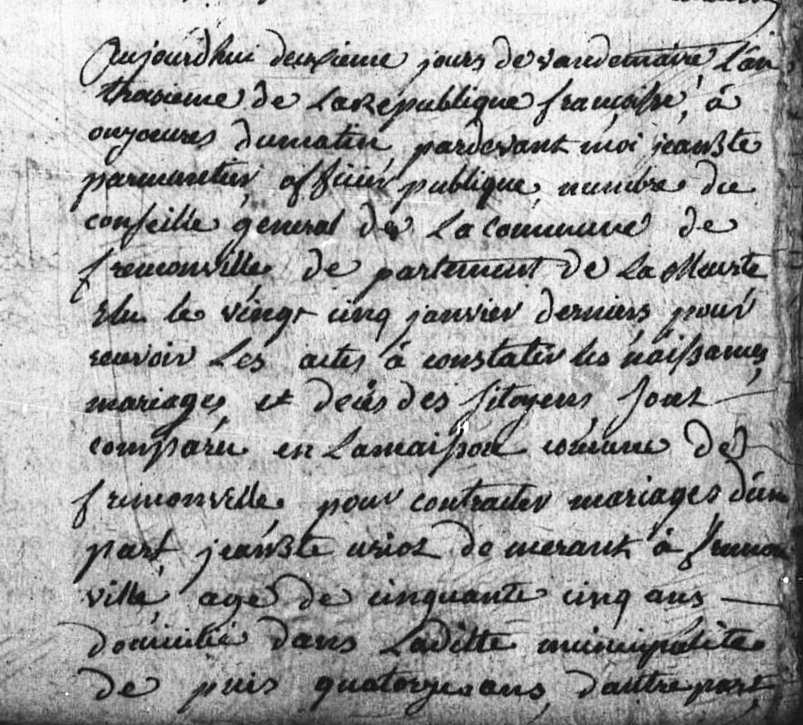 Aujourdhui deuxieme jours de vandemaire L'an
troisieme de La Republique francaise, á
onzoeures dumatin pardevant moi jeanBte
parmentier officier publique, membre du
conseille general de La commune de
fremonville de partement de La Meurte
Elu le vingt cinq janvier derniers pour
recevoir Les actes á constater les naissances
mariages et decès des sitoyens sont
comparu en Lamaison commune de
frimonville pour contracter mariages d'une
part jeanBte uriot demeurant á fremon
ville agé de cinquante cinq ans
domicilié dans Laditte municipalite
de puis quatorze ans, dautre part